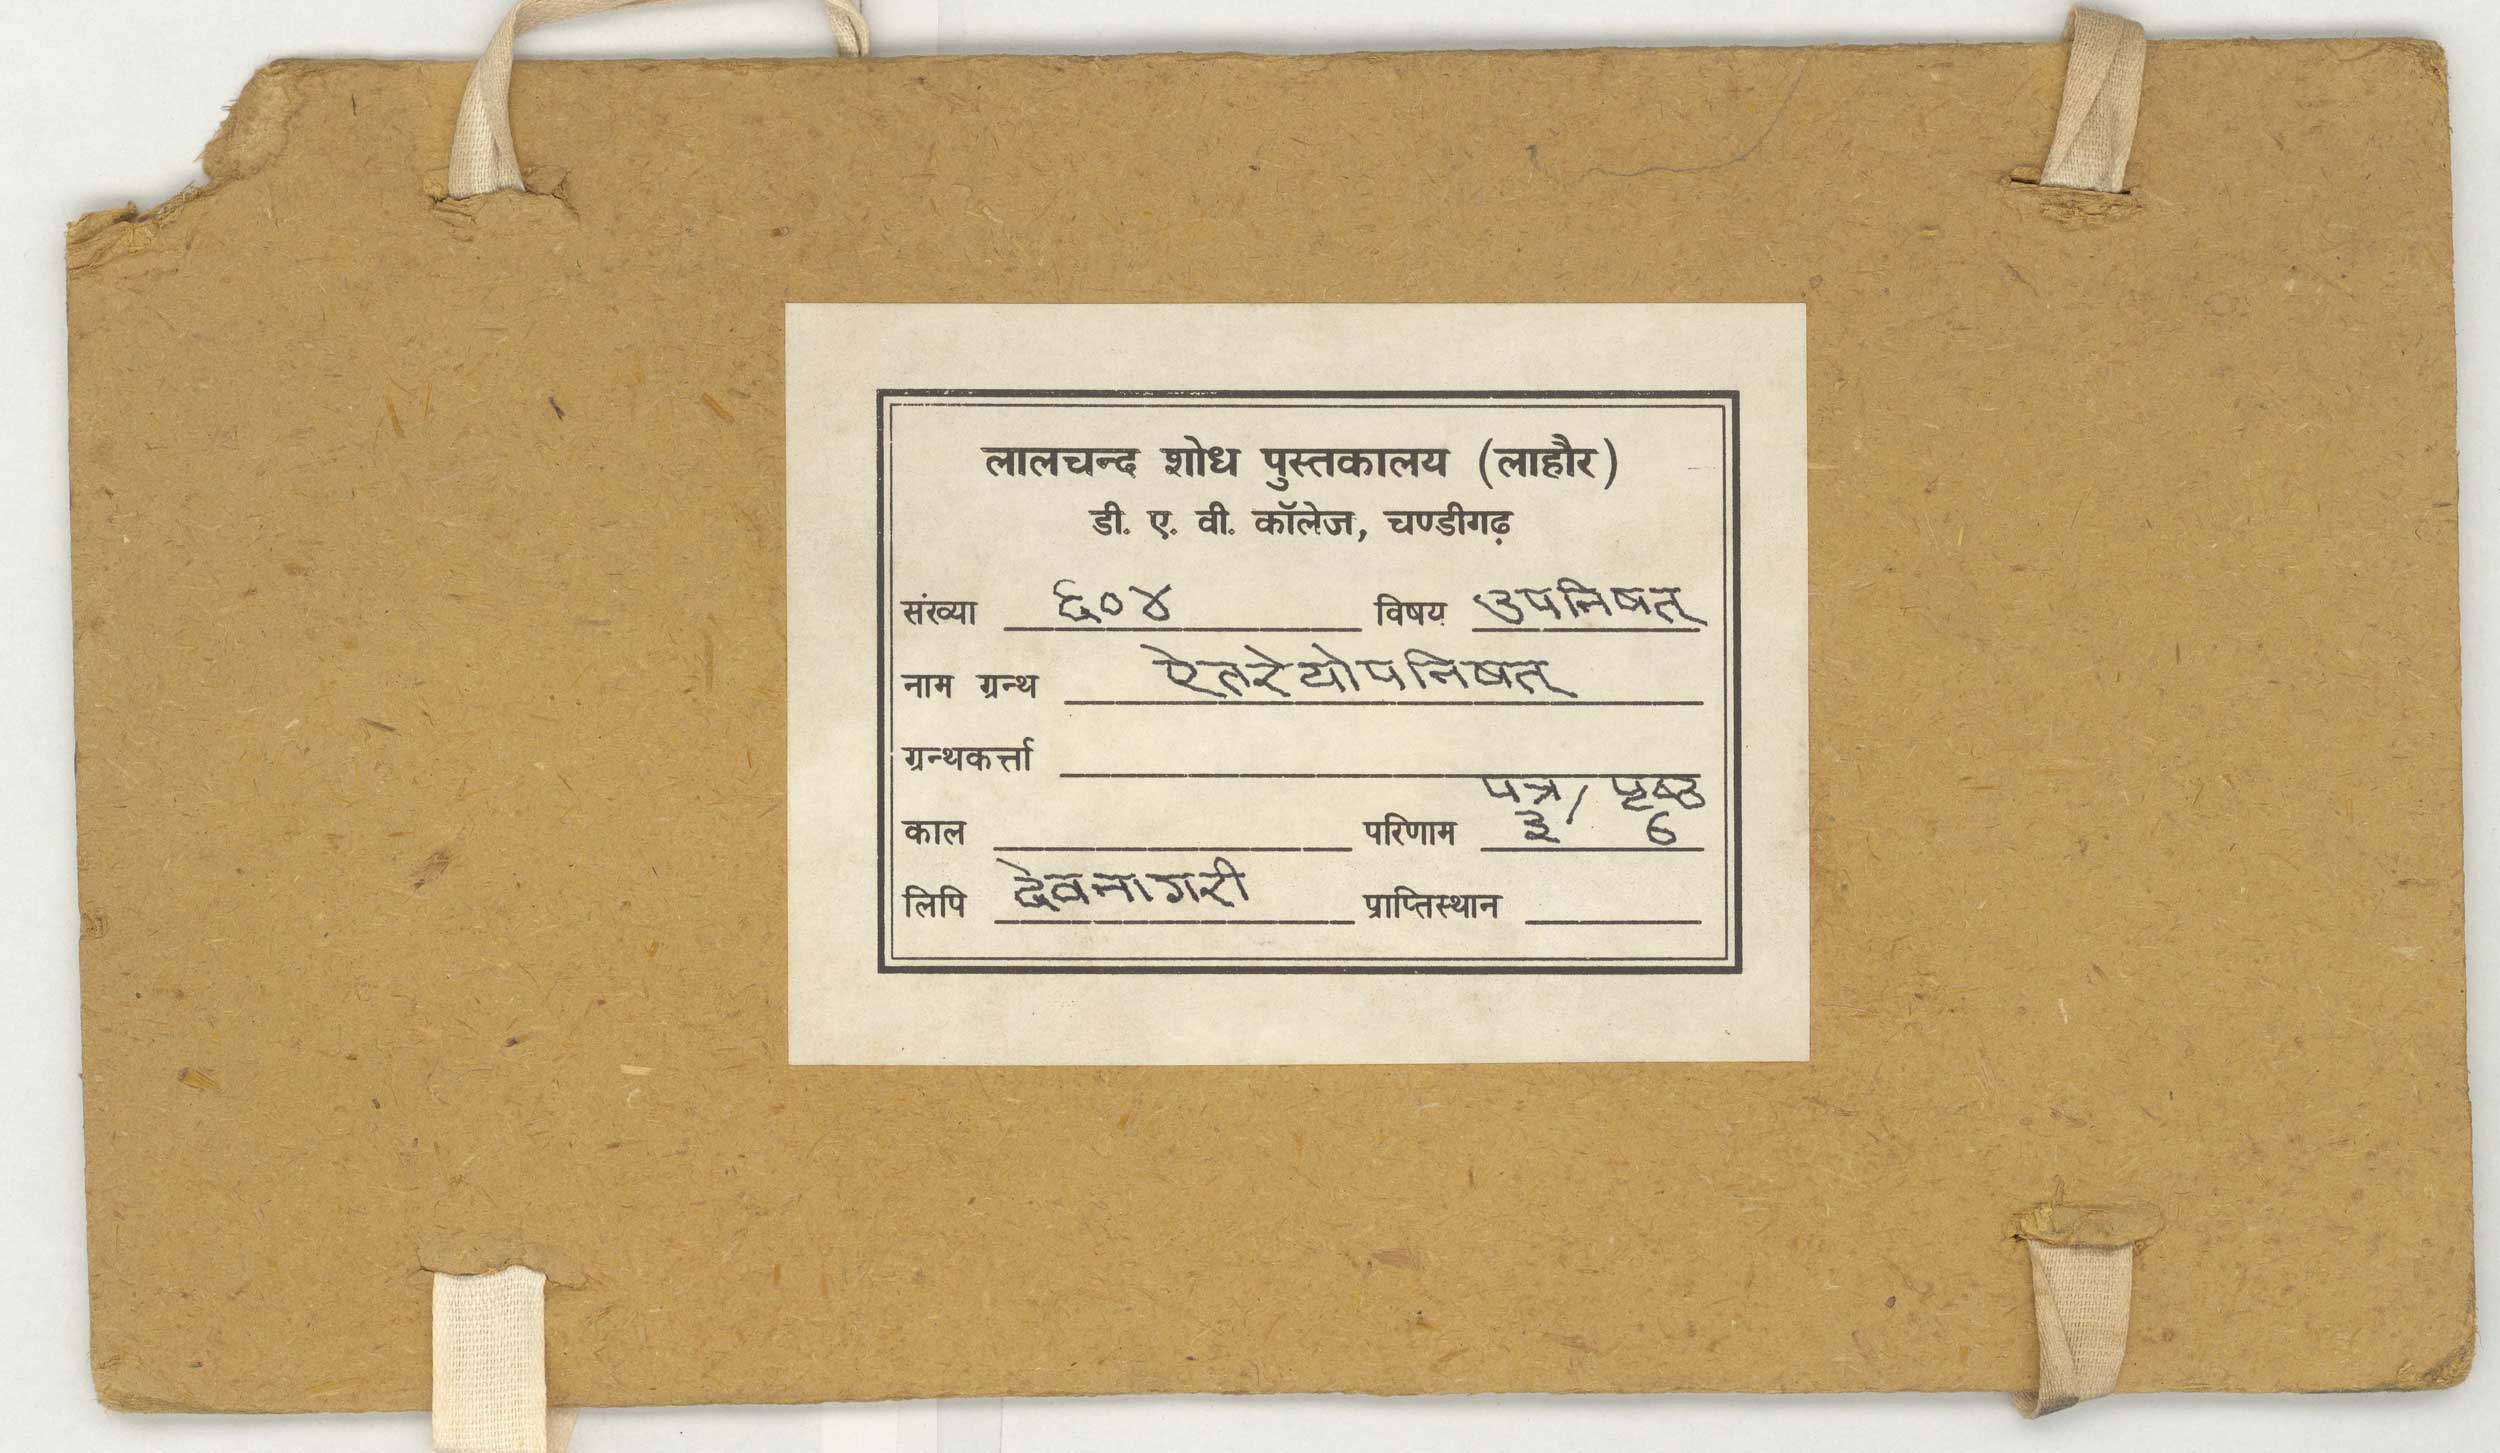 लालचन्द शोध पुस्तकालय (लाहौर)
डी. ए. वी. कॉलेज, चण्डीगढ़
संख्या ६०४ विषय उपनिषत्
नाम ग्रन्थ ऐतरेयोपनिषत्
ग्रन्थकर्त्ता
पत्र / पृष्ठ
काल परिणाम ३ 6
लिपि देवनागरी प्राप्तिस्थान